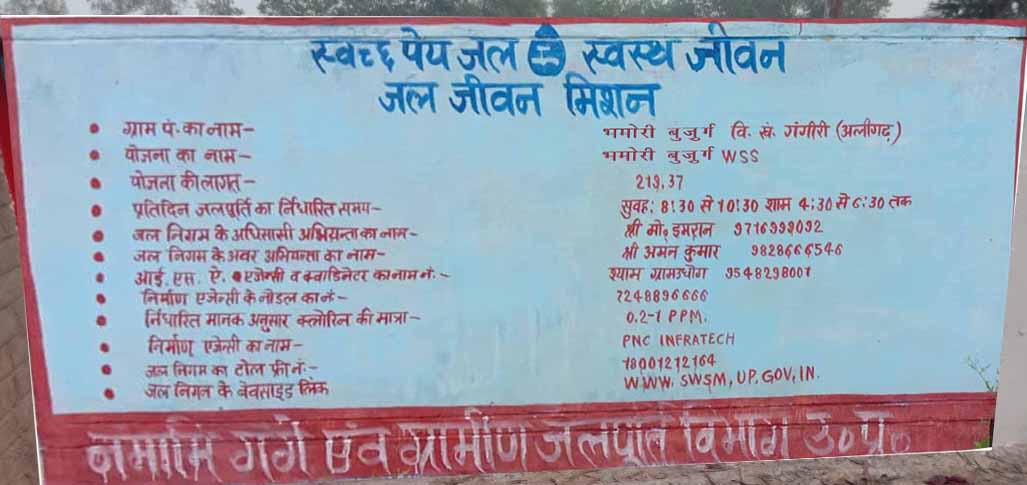 स्वच्छ पेय जल स्वस्थ जीवन
जल जीवन मिशन
ग्राम पं. का नाम- भमोरी बुजुर्ग वि. खं. गंगीरी (अलीगढ़)
योजना का नाम- भमोरी बुजुर्ग WSS
योजना की लागत- 219.37
प्रतिदिन जलपूर्ति का र्निधारित समय- सुवह: 8:30 से 10:30 शाम 4:30 से 6:30 तक
जल निगम के अधिसासी अभियन्ता का नाम- श्री मो. इमरान 9716999092
जल निगम के अवर अभियन्ता का नाम- श्री अमन कुमार 9828666546
आई. एस. ऐ. एजेन्सी व क्वाडिनेटर का नाम नं:- श्याम ग्रामउधोग 9548298001
निर्माण एजेन्सी के नोडल का नं- 7248896666
र्निधारित मानक अनुसार क्लोरिन की मात्रा- 0.2-1 PPM.
निर्माण एजेन्सी का नाम- PNC INFRATECH
जल निगम का टोल फ्री नं:- 18001212164
जल निगम के वेवसाइड लिंक WWW. SWSM, UP. GOV, IN.
नमामि गंगे एवं ग्रामीण जलपूर्ति विभाग उ० प्र०